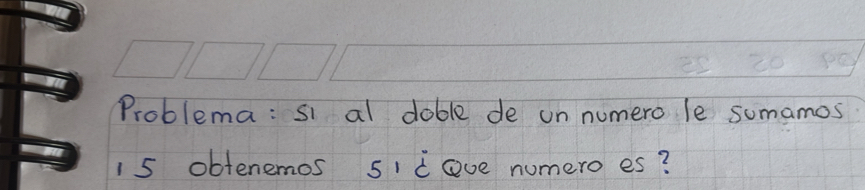 Problema: si al doble de un numero le sumamos
15 obtenemos 51 ¿Que numero es?